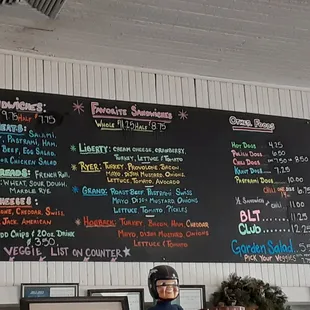 NDWICHES:
9.75 HALF 7.75
EATS:
SALAMI,
PASTRAMI, HAM,
BEEF, EGG SALAD,
OR CHICKEN SALAD
READS: FRENCH ROLL
WHEAT, SOUR DOUGH,
MARBLE RYE
EESES:
CHEDDAR, SWISS
JACK, AMERICAN
ADD CHIPS & 20OZ DRINK
3.50
VEGGIE LIST ON COUNTER
FAVORITE SANDWICHES
WHOLE 11.25 HALF 8.75
LIBERTY: CREAM CHEESE, CRANBERRY,
TURKEY, LETTUCE
RYER: TURKEY, PROVOLONE, BACON
MAYO, DIJON MUSTARD, ONIONS,
LETTUCE, TOMATO, AVOCADO
GRAND: ROAST BEEF, PASTRAMI, SWISS
MAYO, DIJON MUSTARD, ONIONS
LETTUCE, TOMATO, PICKLES
HOGBACK: TURKEY, HAM, BACON, CHEDDAR
MAYO, DIJON MUSTARD, ONIONS
LETTUCE & TOMATO
OTHER FOODS
HOT DOGS 4.75
POLISH DOGS 6.00
CHILI DOGS 7.50
KRAUT DOGS 7.25
PASTRAMI DOGS
CHILI
BLT
CLUB 12.25
GARDEN SALAD